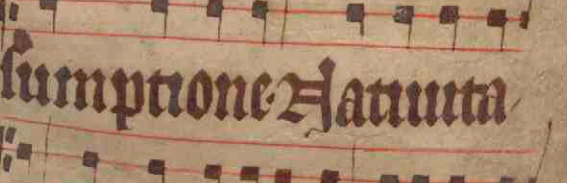 sumptione · Natiuita